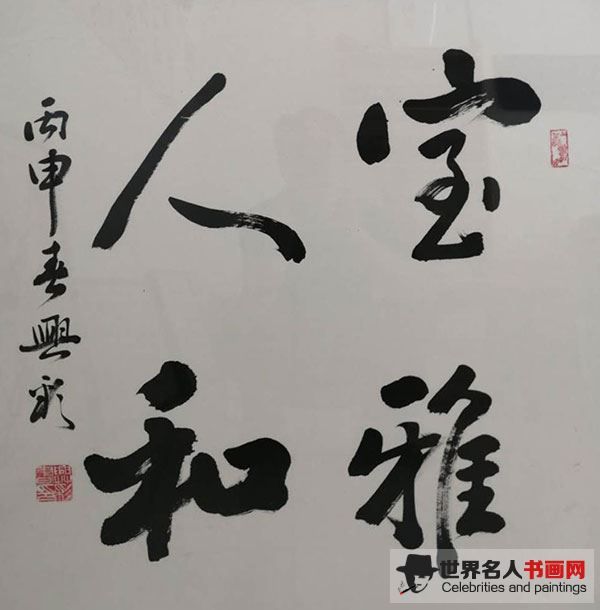 室雅
人和
丙申春興彩
世界名人书画网
Celebrities and paintings